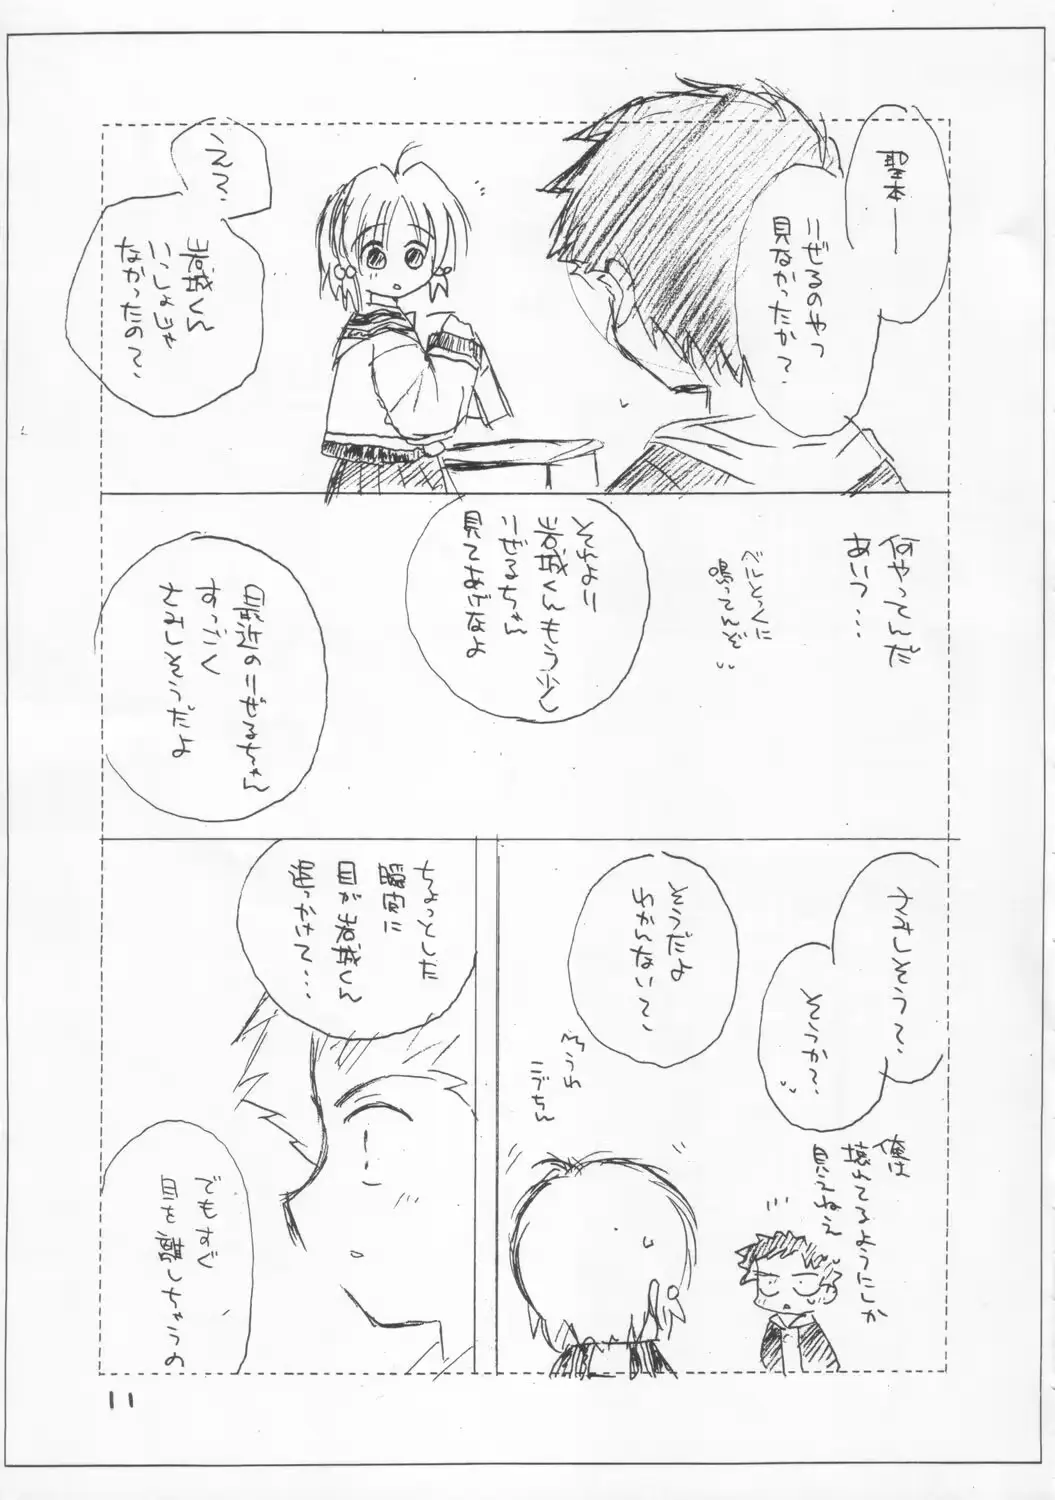 聖本――
リぜるのやつ
見なかったか?
え?
岩城くん
いっしょじゃ
なかったの?
何やってんだ
あいつ…
ベルとっくに
鳴ってんぞ
それよりｉ
岩城くんもう少し
リぜるちゃん
見てあげなよ
最近のリぜるちゃん
すっごく
さみしそうだよ
さみしそう?
そうか?
俺は
壊れてるようにしか
見えねえ
そうだよ
わかんない?
うわ
ニブちん
ちょっとした
瞬間に
目が岩城くん
追っかけて…
でもすぐ
目を離しちゃうの
11